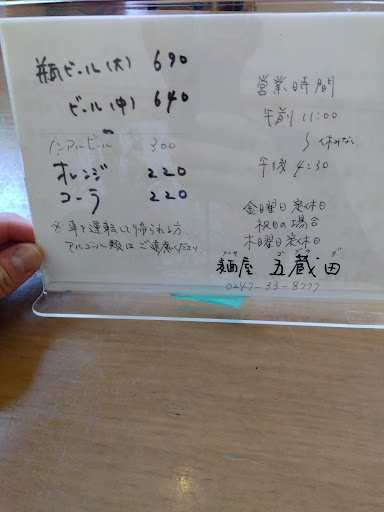 瓶ビール(大) 690
ビール(中) 640
ノンアルビール 300
オレンジ 220
コーラ 220
※ 車を運転して帰られる方
アルコール類はご遠慮ください
営業時間
午前 11:00
〜 休みなし
午後 4:30
金曜日定休日
祝日の場合
木曜日定休日
麺屋 五蔵田
0247-33-8777